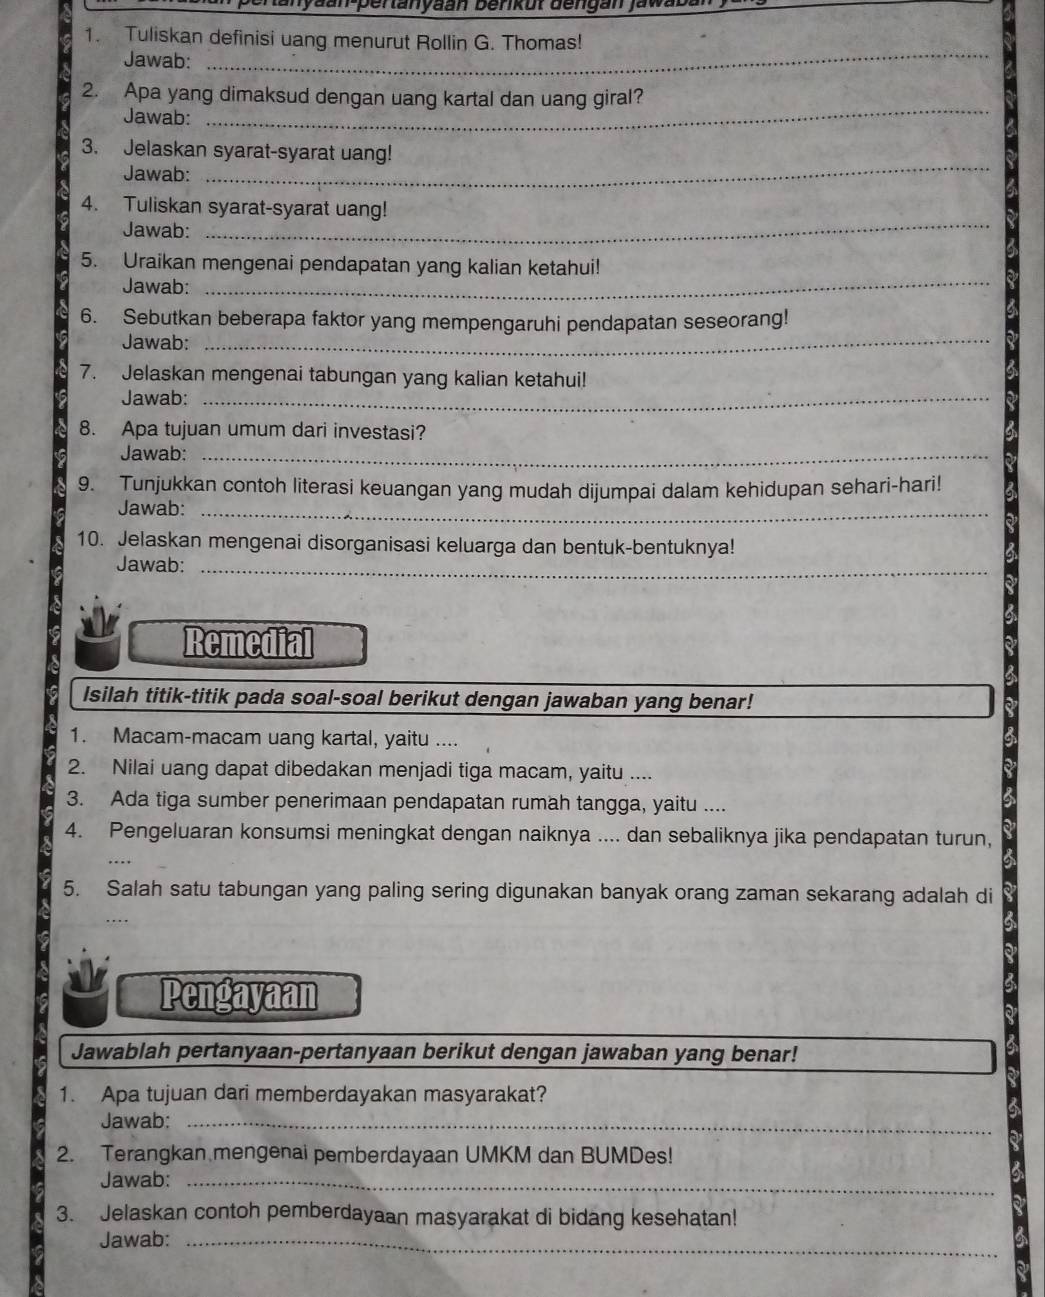 pertanyaan-pertanyaan berikut dengan
1. Tuliskan definisi uang menurut Rollin G. Thomas!
Jawab:
2. Apa yang dimaksud dengan uang kartal dan uang giral?
Jawab:
3. Jelaskan syarat-syarat uang!
Jawab:
4. Tuliskan syarat-syarat uang!
Jawab:
5. Uraikan mengenai pendapatan yang kalian ketahui!
Jawab:
6. Sebutkan beberapa faktor yang mempengaruhi pendapatan seseorang!
Jawab:
7. Jelaskan mengenai tabungan yang kalian ketahui!
Jawab:
8. Apa tujuan umum dari investasi?
Jawab:
9. Tunjukkan contoh literasi keuangan yang mudah dijumpai dalam kehidupan sehari-hari!
Jawab:
10. Jelaskan mengenai disorganisasi keluarga dan bentuk-bentuknya!
Jawab:
Remedial
Isilah titik-titik pada soal-soal berikut dengan jawaban yang benar!
1. Macam-macam uang kartal, yaitu ....
2. Nilai uang dapat dibedakan menjadi tiga macam, yaitu ....
3. Ada tiga sumber penerimaan pendapatan rumah tangga, yaitu ....
4. Pengeluaran konsumsi meningkat dengan naiknya .... dan sebaliknya jika pendapatan turun,
....
5. Salah satu tabungan yang paling sering digunakan banyak orang zaman sekarang adalah di
....
Pengayaan
Jawablah pertanyaan-pertanyaan berikut dengan jawaban yang benar!
1. Apa tujuan dari memberdayakan masyarakat?
Jawab:
2. Terangkan mengenai pemberdayaan UMKM dan BUMDes!
Jawab:
3. Jelaskan contoh pemberdayaan masyarakat di bidang kesehatan!
Jawab: